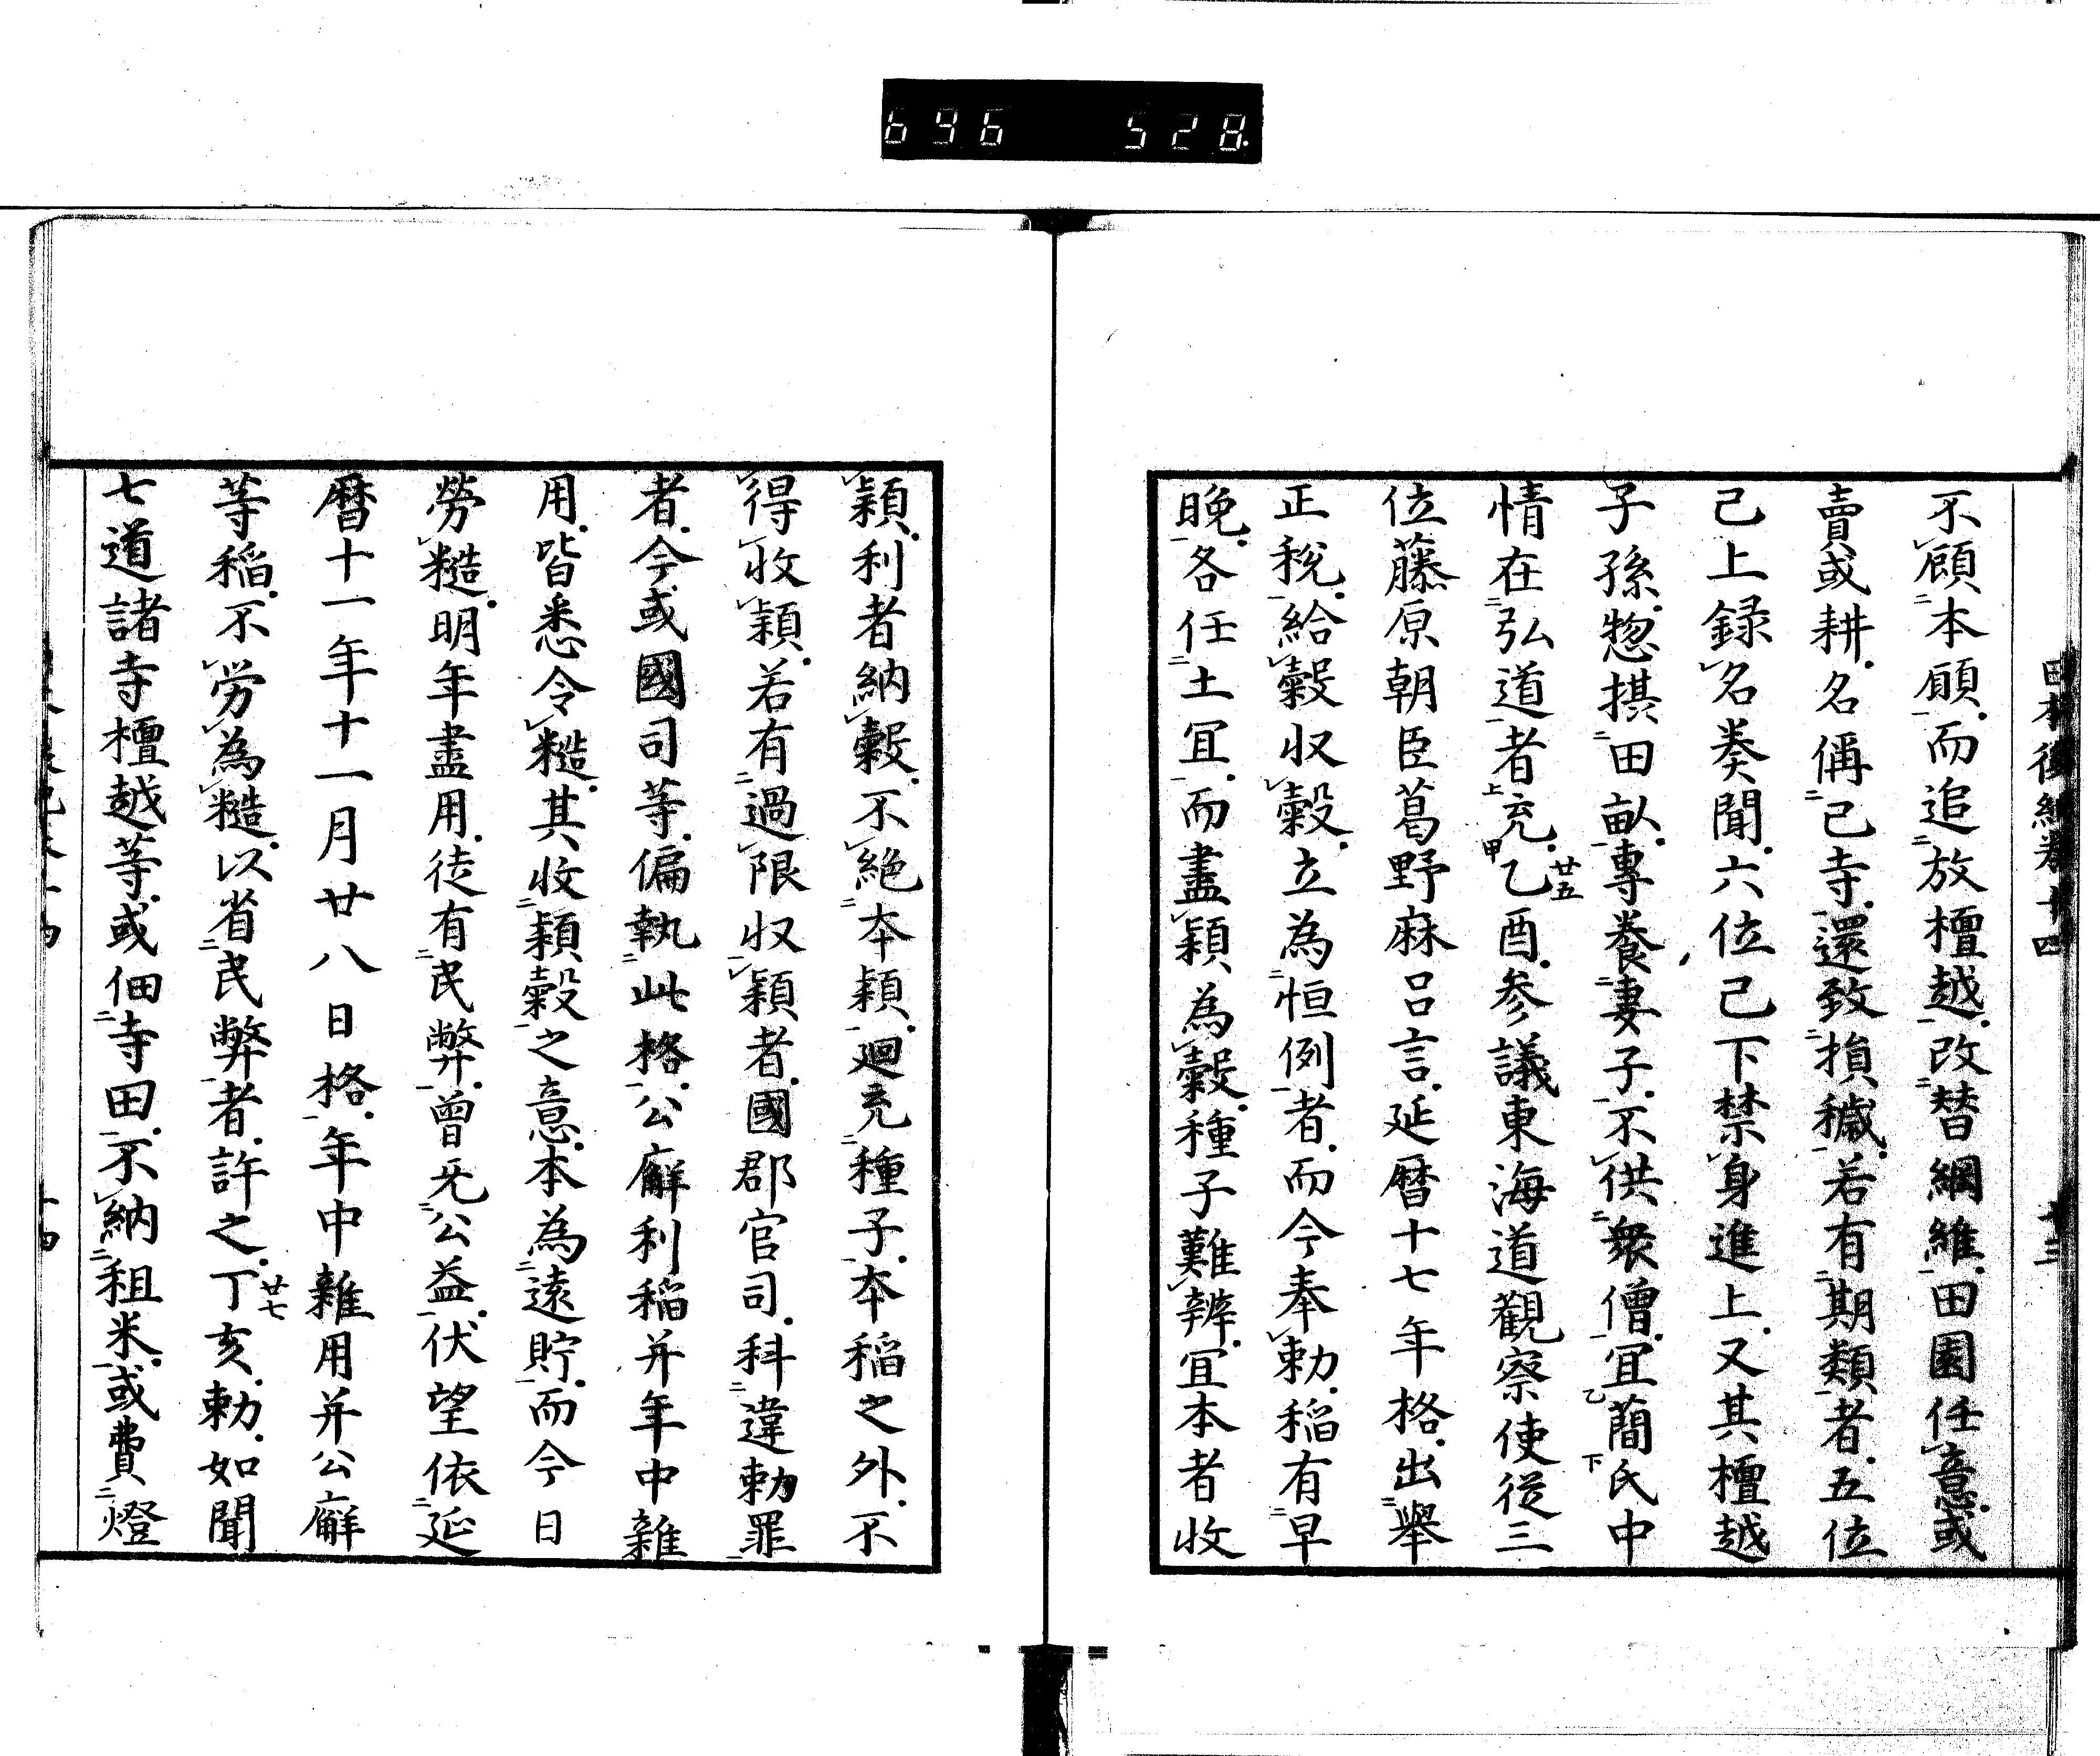 696 528
日本後紀卷十四 十三
不顧本願而追放檀越改替綱維田園任意或
賣或耕名偁己寺還致損穢若有期類者五位
已上録名奏聞六位已下禁身進上又其檀越
子孫惣摂田畝專養妻子不供衆僧宜蕳氏中
情在弘道者充乙酉參議東海道觀察使從三
廿五
位藤原朝臣葛野麻呂言延暦十七年格出舉
正税給穀収穀立為恒例者而今奉勅稲有早
晚各任土宜而盡穎為穀種子難辨宜本者收
穎利者納穀不絶本穎廻充種子本稲之外不
得收穎若有過限収穎者國郡官司科違勅罪
者今或國司等偏執此格公廨利稲并年中雜
用皆悉令糙其收穎穀之意本為遠貯而今日
勞糙明年盡用徒有民弊曾无公益伏望依延
暦十一年十一月廿八日格年中雜用并公廨
等稲不労為糙以省民弊者許之丁亥勅如聞
廿七
七道諸寺檀越等或佃寺田不納租米或費燈